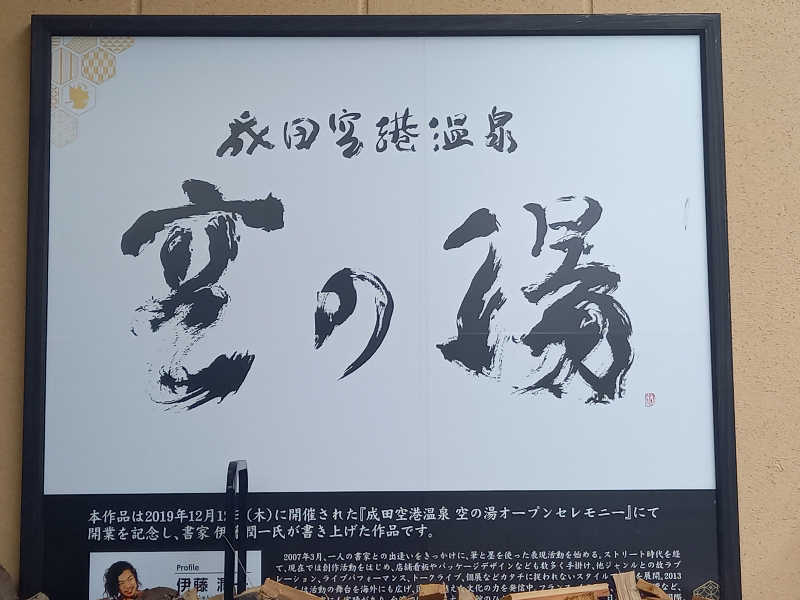 成田空港温泉
空の湯
本作品は2019年12月12 (木)に開催された『成田空港温泉 空の湯オープンセレモニー』にて
開業を記念し、書家 伊 潤一氏が書き上げた作品です。
Profile
伊藤 潤一
2007年3月、一人の書家との出逢いをきっかけに、筆と墨を使った表現活動を始める。ストリート時代を経
て、現在では創作活動をはじめ、店舗看板やパッケージデザインなども数多く手掛け、他ジャンルとの故ラブ
レーション、ライブパフォーマンス、トークライブ、個展などカタチに捉われないスタイルで を展開。2013
は活動の舞台を海外にも広げ、